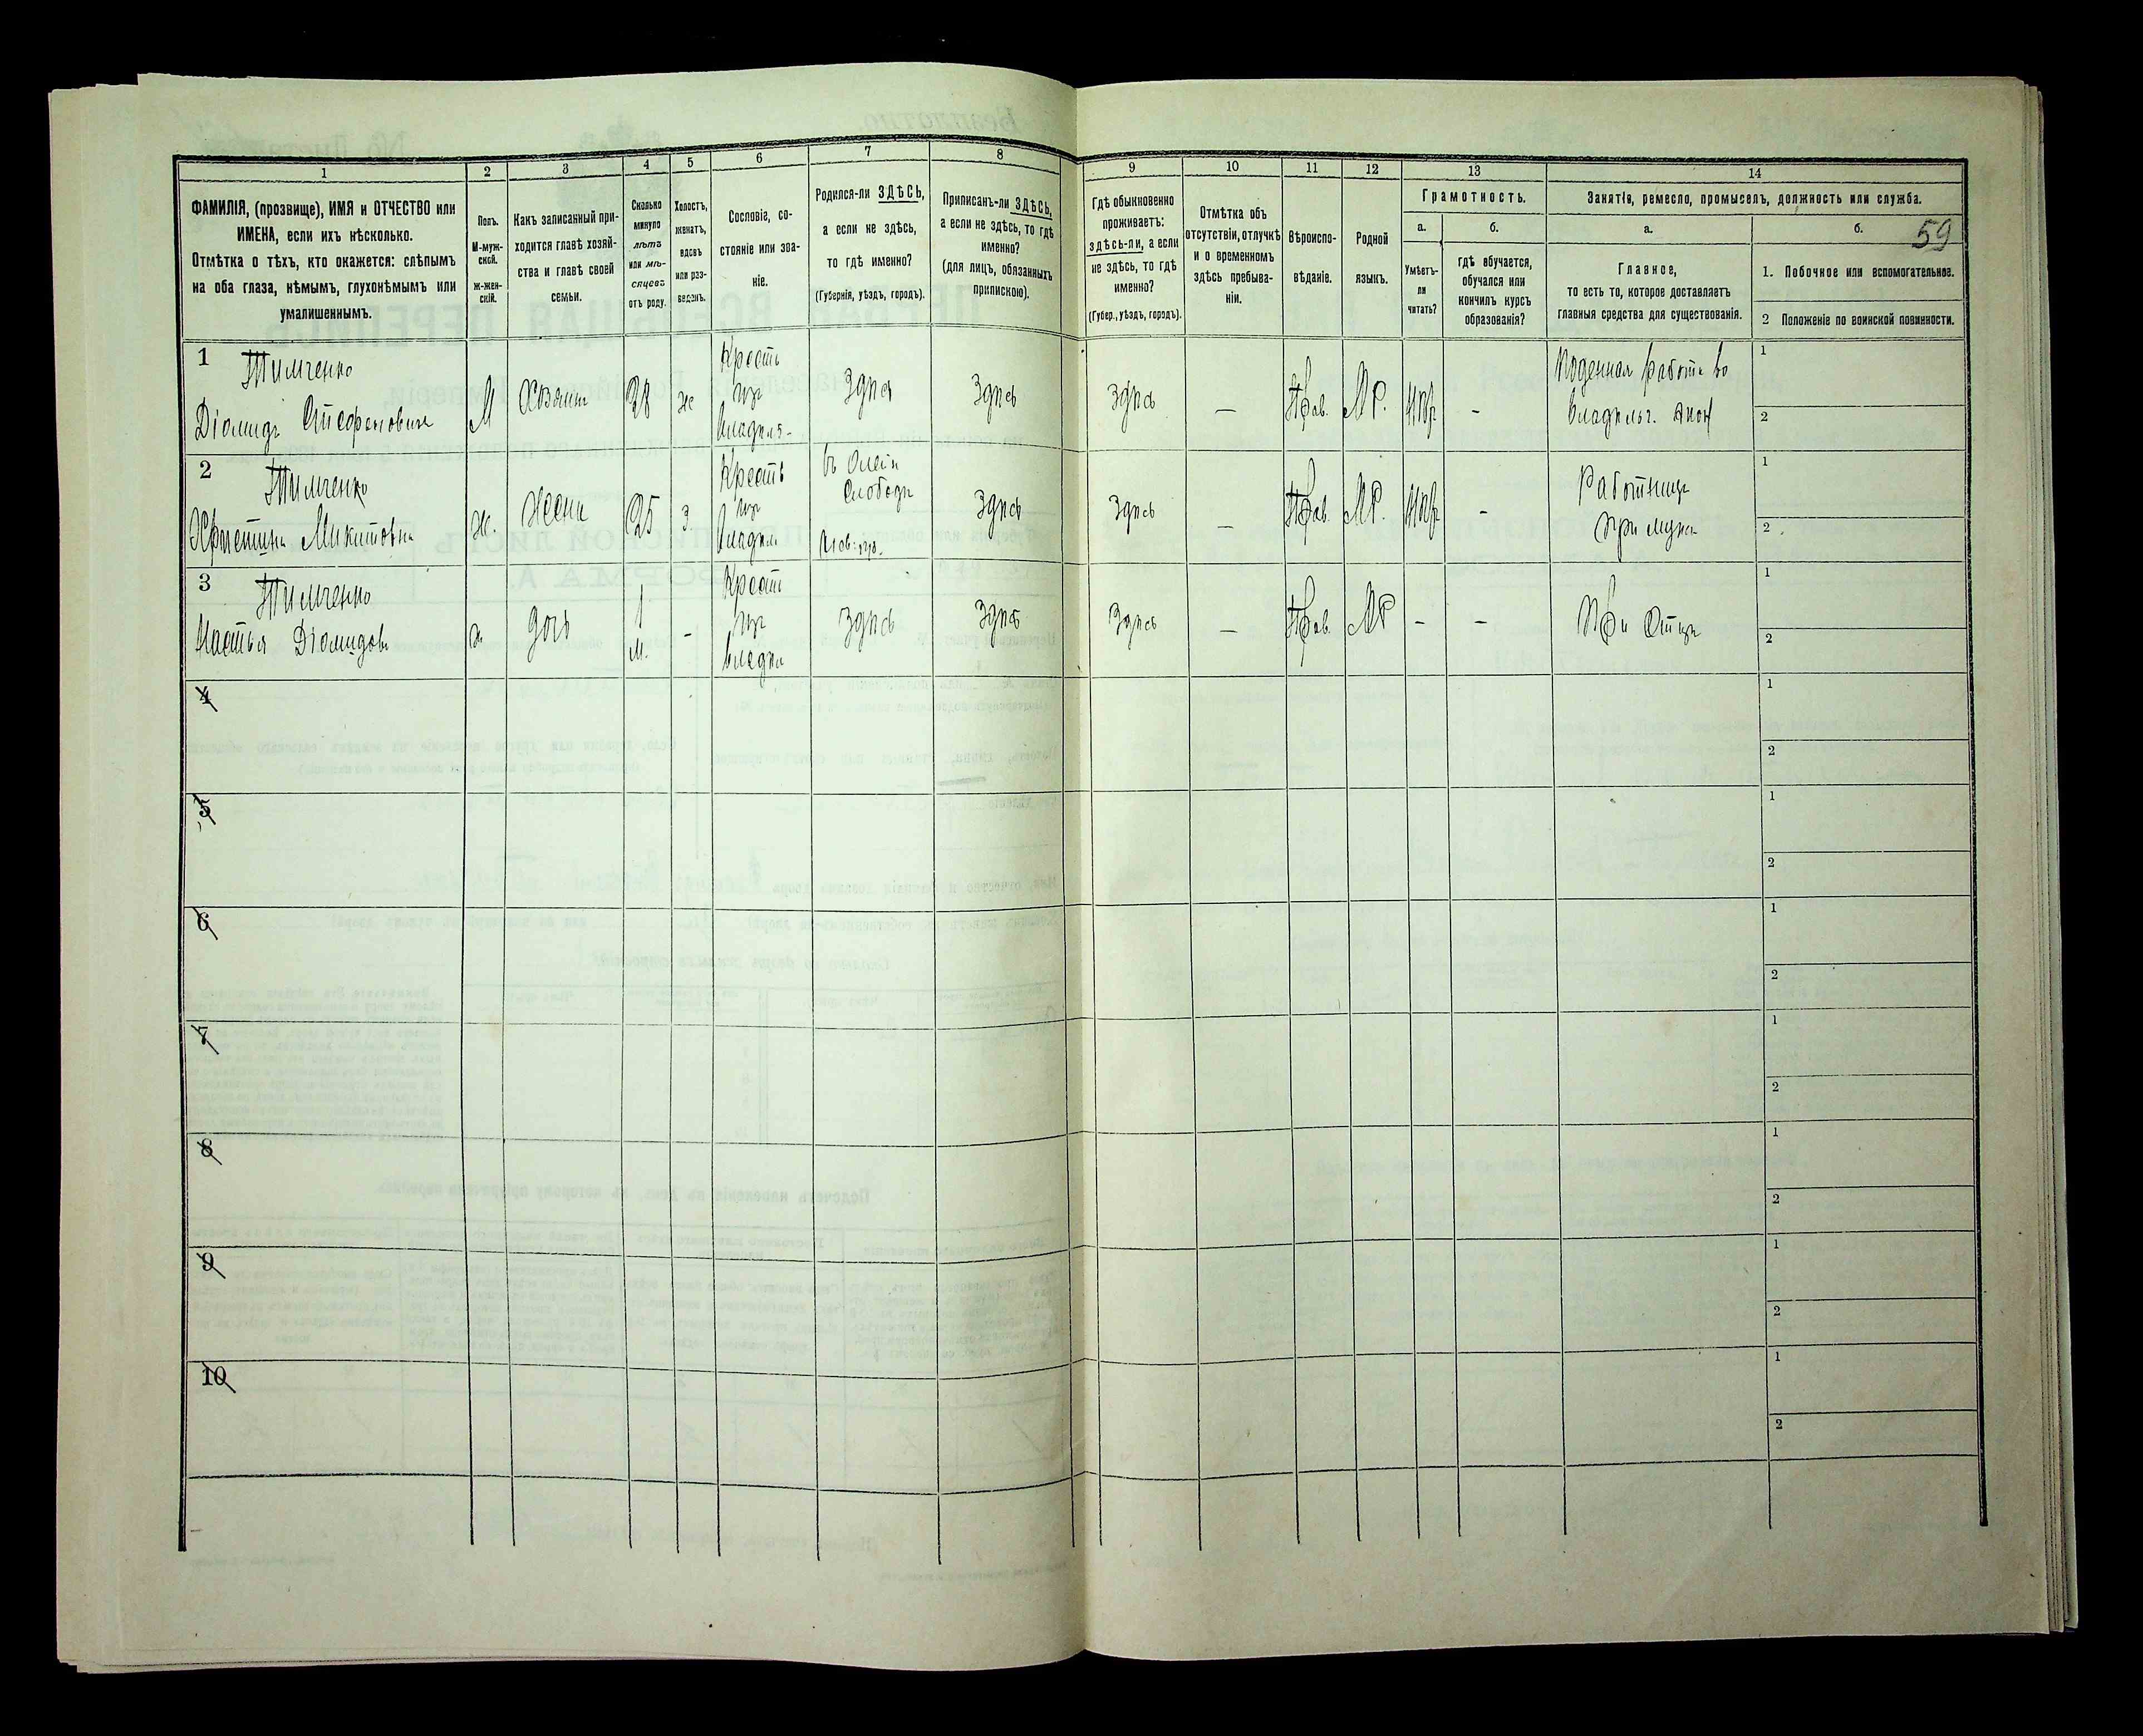 1
2
3
4
5
6
7
8
9
10
11
12
13
14
ФАМИЛІЯ, (прозвище), ИМЯ и ОТЧЕСТВО или
ИМЕНА, если ихъ нѣсколько.
Отмѣтка о тѣхъ, кто окажется: слѣпымъ
на оба глаза, нѣмымъ, глухонѣмымъ или
умалишеннымъ.
Полъ.
М-муж-
ской.
ж-жен-
скій.
Какъ записанный при-
ходится главѣ хозяй-
ства и главѣ своей
семьи.
Сколько
минуло
лѣтъ
или мѣ-
сяцевъ
отъ роду.
Холостъ,
женатъ,
вдовъ
или раз-
веденъ.
Сословіе, со-
стояніе или зва-
ніе.
Родился-ли ЗДѢСЬ,
а если не здѣсь,
то гдѣ именно?
(Губернія, уѣздъ, городъ).
Приписанъ-ли ЗДѢСЬ,
а если не здѣсь, то гдѣ
именно?
(для лицъ, обязанныхъ
припискою).
Гдѣ обыкновенно
проживаетъ:
здѣсь-ли, а если
не здѣсь, то гдѣ
именно?
(Губер., уѣздъ, городъ).
Отмѣтка объ
отсутствіи, отлучкѣ
и о временномъ
здѣсь пребыва-
ніи.
Вѣроиспо-
вѣданіе.
Родной
языкъ.
Грамотность.
а.
Умѣетъ-
ли
читать?
б.
гдѣ обучается,
обучался или
кончилъ курсъ
образованія?
Занятіе, ремесло, промыселъ, должность или служба.
а.
Главное,
то есть то, которое доставляетъ
главныя средства для существованія.
б.
59
1. Побочное или вспомогательное.
2 Положеніе по воинской повинности.
1
Тимченко
Діомидъ Стефановичъ
М
Хозяинъ
28
ж
Крестъ
изъ
Владѣл-
Здѣсь
Здѣсь
Здѣсь
—
Прав.
МР.
-
Поденная работа во
Владѣльч. экон
1
2
2
Тимченко
Христина Микитовна
ж.
Жена
25
з.
Крестъ
изъ
Владѣл
Слободѣ
Здѣсь
Здѣсь
—
Прав.
МР.
-
Работница
при мужѣ
1
2
3
Тимченко
Настья Діомидов
ж
дочь
1
м.
-
Крестъ
изъ
Владѣл
Здѣсь
Здѣсь
Здѣсь
—
Прав.
МР
-
-
При Отцѣ
1
2
4
1
2
5
1
2
6
1
2
7
1
2
8
1
2
9
1
2
10
1
2